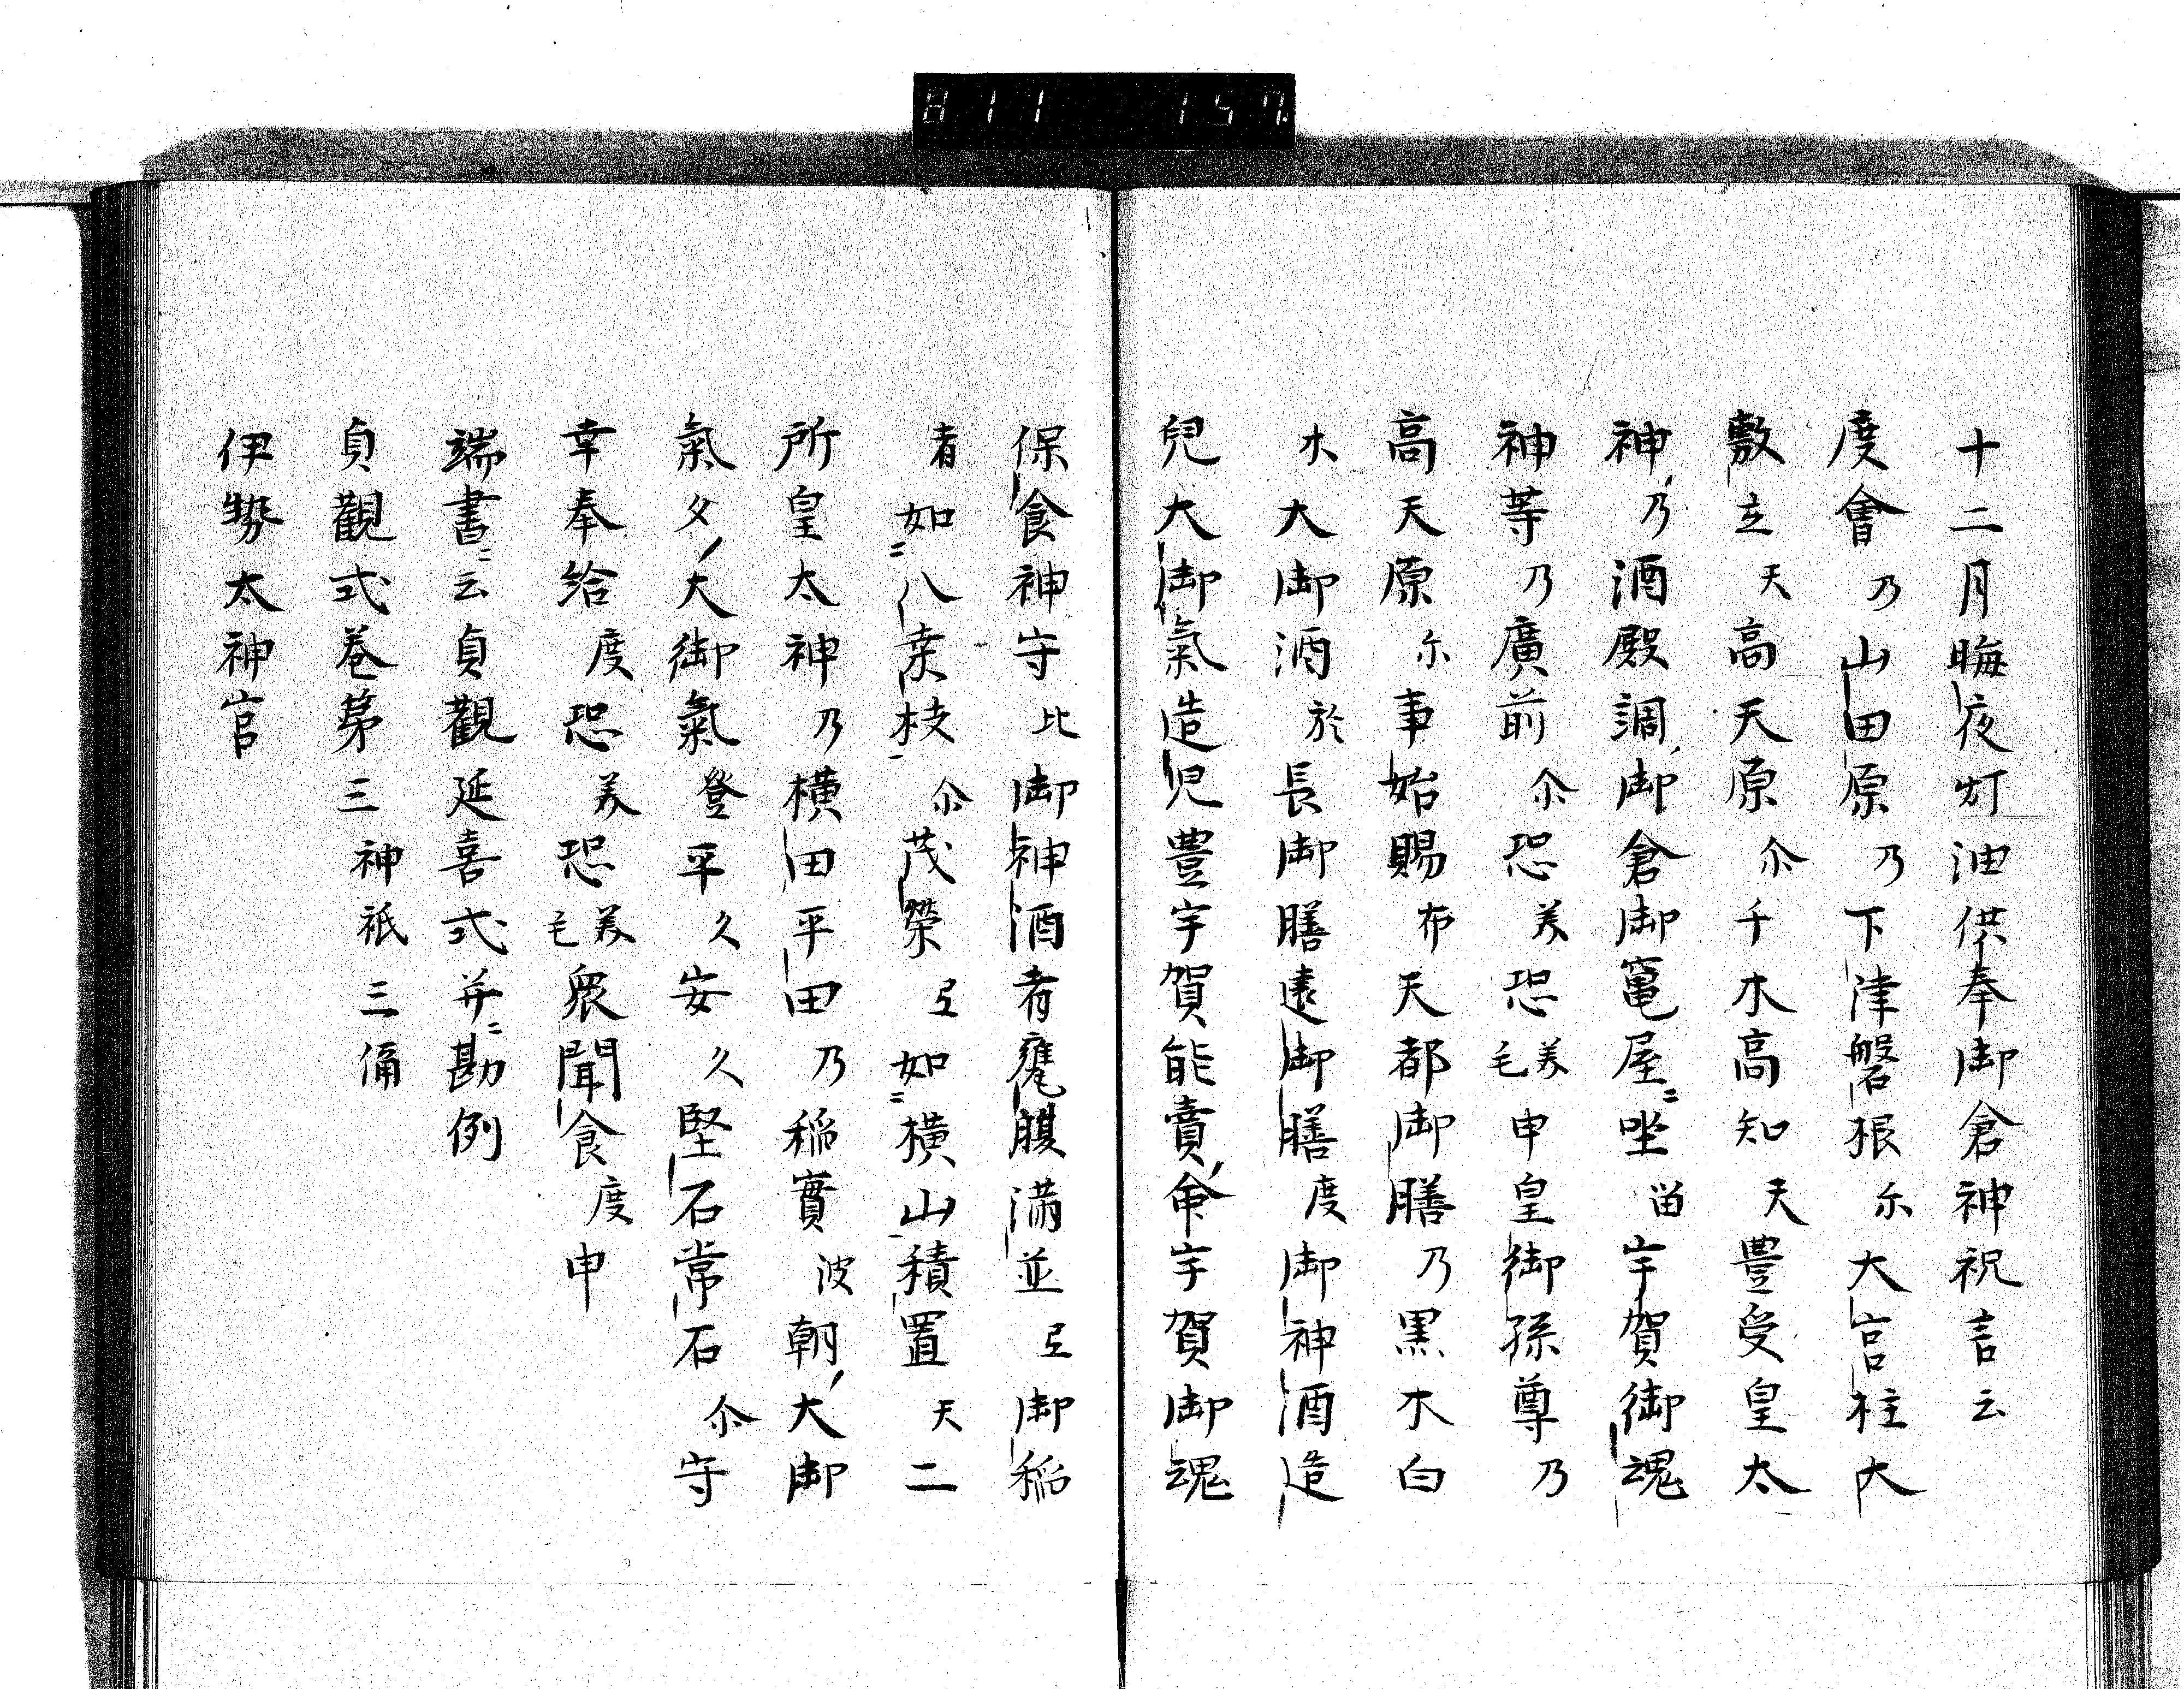 811 157
十二月晦夜灯油供奉御倉神祝言云
度會乃山田原乃下津磐根尓大宮柱大
敷立天高天原尒千木高知天豊受皇太
神乃酒殿調御倉御竃屋坐留宇賀御魂
神等乃廣前尒恐美恐美毛申皇御孫尊乃
高天原尓事始賜布天都御膳乃黒木白
木大御酒於長御膳遠御膳度御神酒造
兒大御氣造児豊宇賀能賣命宇賀御魂
保食神守比御神酒者甕腹満並弖御稲
者如八桒枝尒茂榮弖如横山積置天二
所皇太神乃横田平田乃稲實波朝大御
氣夕大御氣登平久安久堅石常石尒守
幸奉給度恐美恐美毛衆聞食度申
端書云貞觀延喜式并勘例
貞觀式巻第三神祇三俑
伊勢太神宮